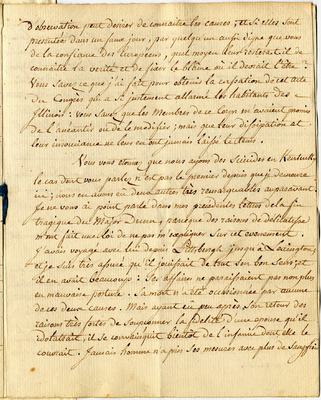 d'observation peut desirer de connaitre les causes; et si elles sont
presentées dans un faux jour, par quelqu'un aussi digne que vous
de la confiance des Européens, quel moyen leur resterait il de
connaître la verité et de fixer le blâme où il devrait l'être?
Vous savez ce que j'ai fait pour obtenir la cassation de cet acte
du Congrès qui a si justement allarmé les habitants des
Illinois: vous savez que les Membres de ce Corps m'avaient promis
de l'aneantir ou de le modifier; mais que leur dissipation et
leur insouciance ne leur en ont jamais laissé le tems.
Vous vous etonnez que nous ayons des Suicides en Kentucky:
le cas dont vous parlez n'est pas le premier depuis que je demeure
ici; nous en avons eu deux autres très remarquables auparavant.
Je ne vous ai point parlé dans mes precedentes lettres de la fin
tragique du Major Dunn, parceque des raisons de delicatesse
m'ont fait une loi de ne pas m'expliquer sur cet evenement.
J'avais voyagé avec lui depuis Pittsburgh jusqu'à Lexington,
et je suis très assuré qu'il jouissait de tout son bon sens, et
il en avait beaucoup: Ses affaires ne paraissaient pas non plus
en mauvaise posture. Sa mort n'a été occasionnée par aucune
de ces deux causes. Mais ayant eu peu après son retour des
raisons très fortes de soupçonner la fidelité d'une epouse qu'il
idolatrait, il se convainquit bientôt de l'infamie dont elle le
couvrait. Jamais homme n'a pris ses mesures avec plus de sangfroi